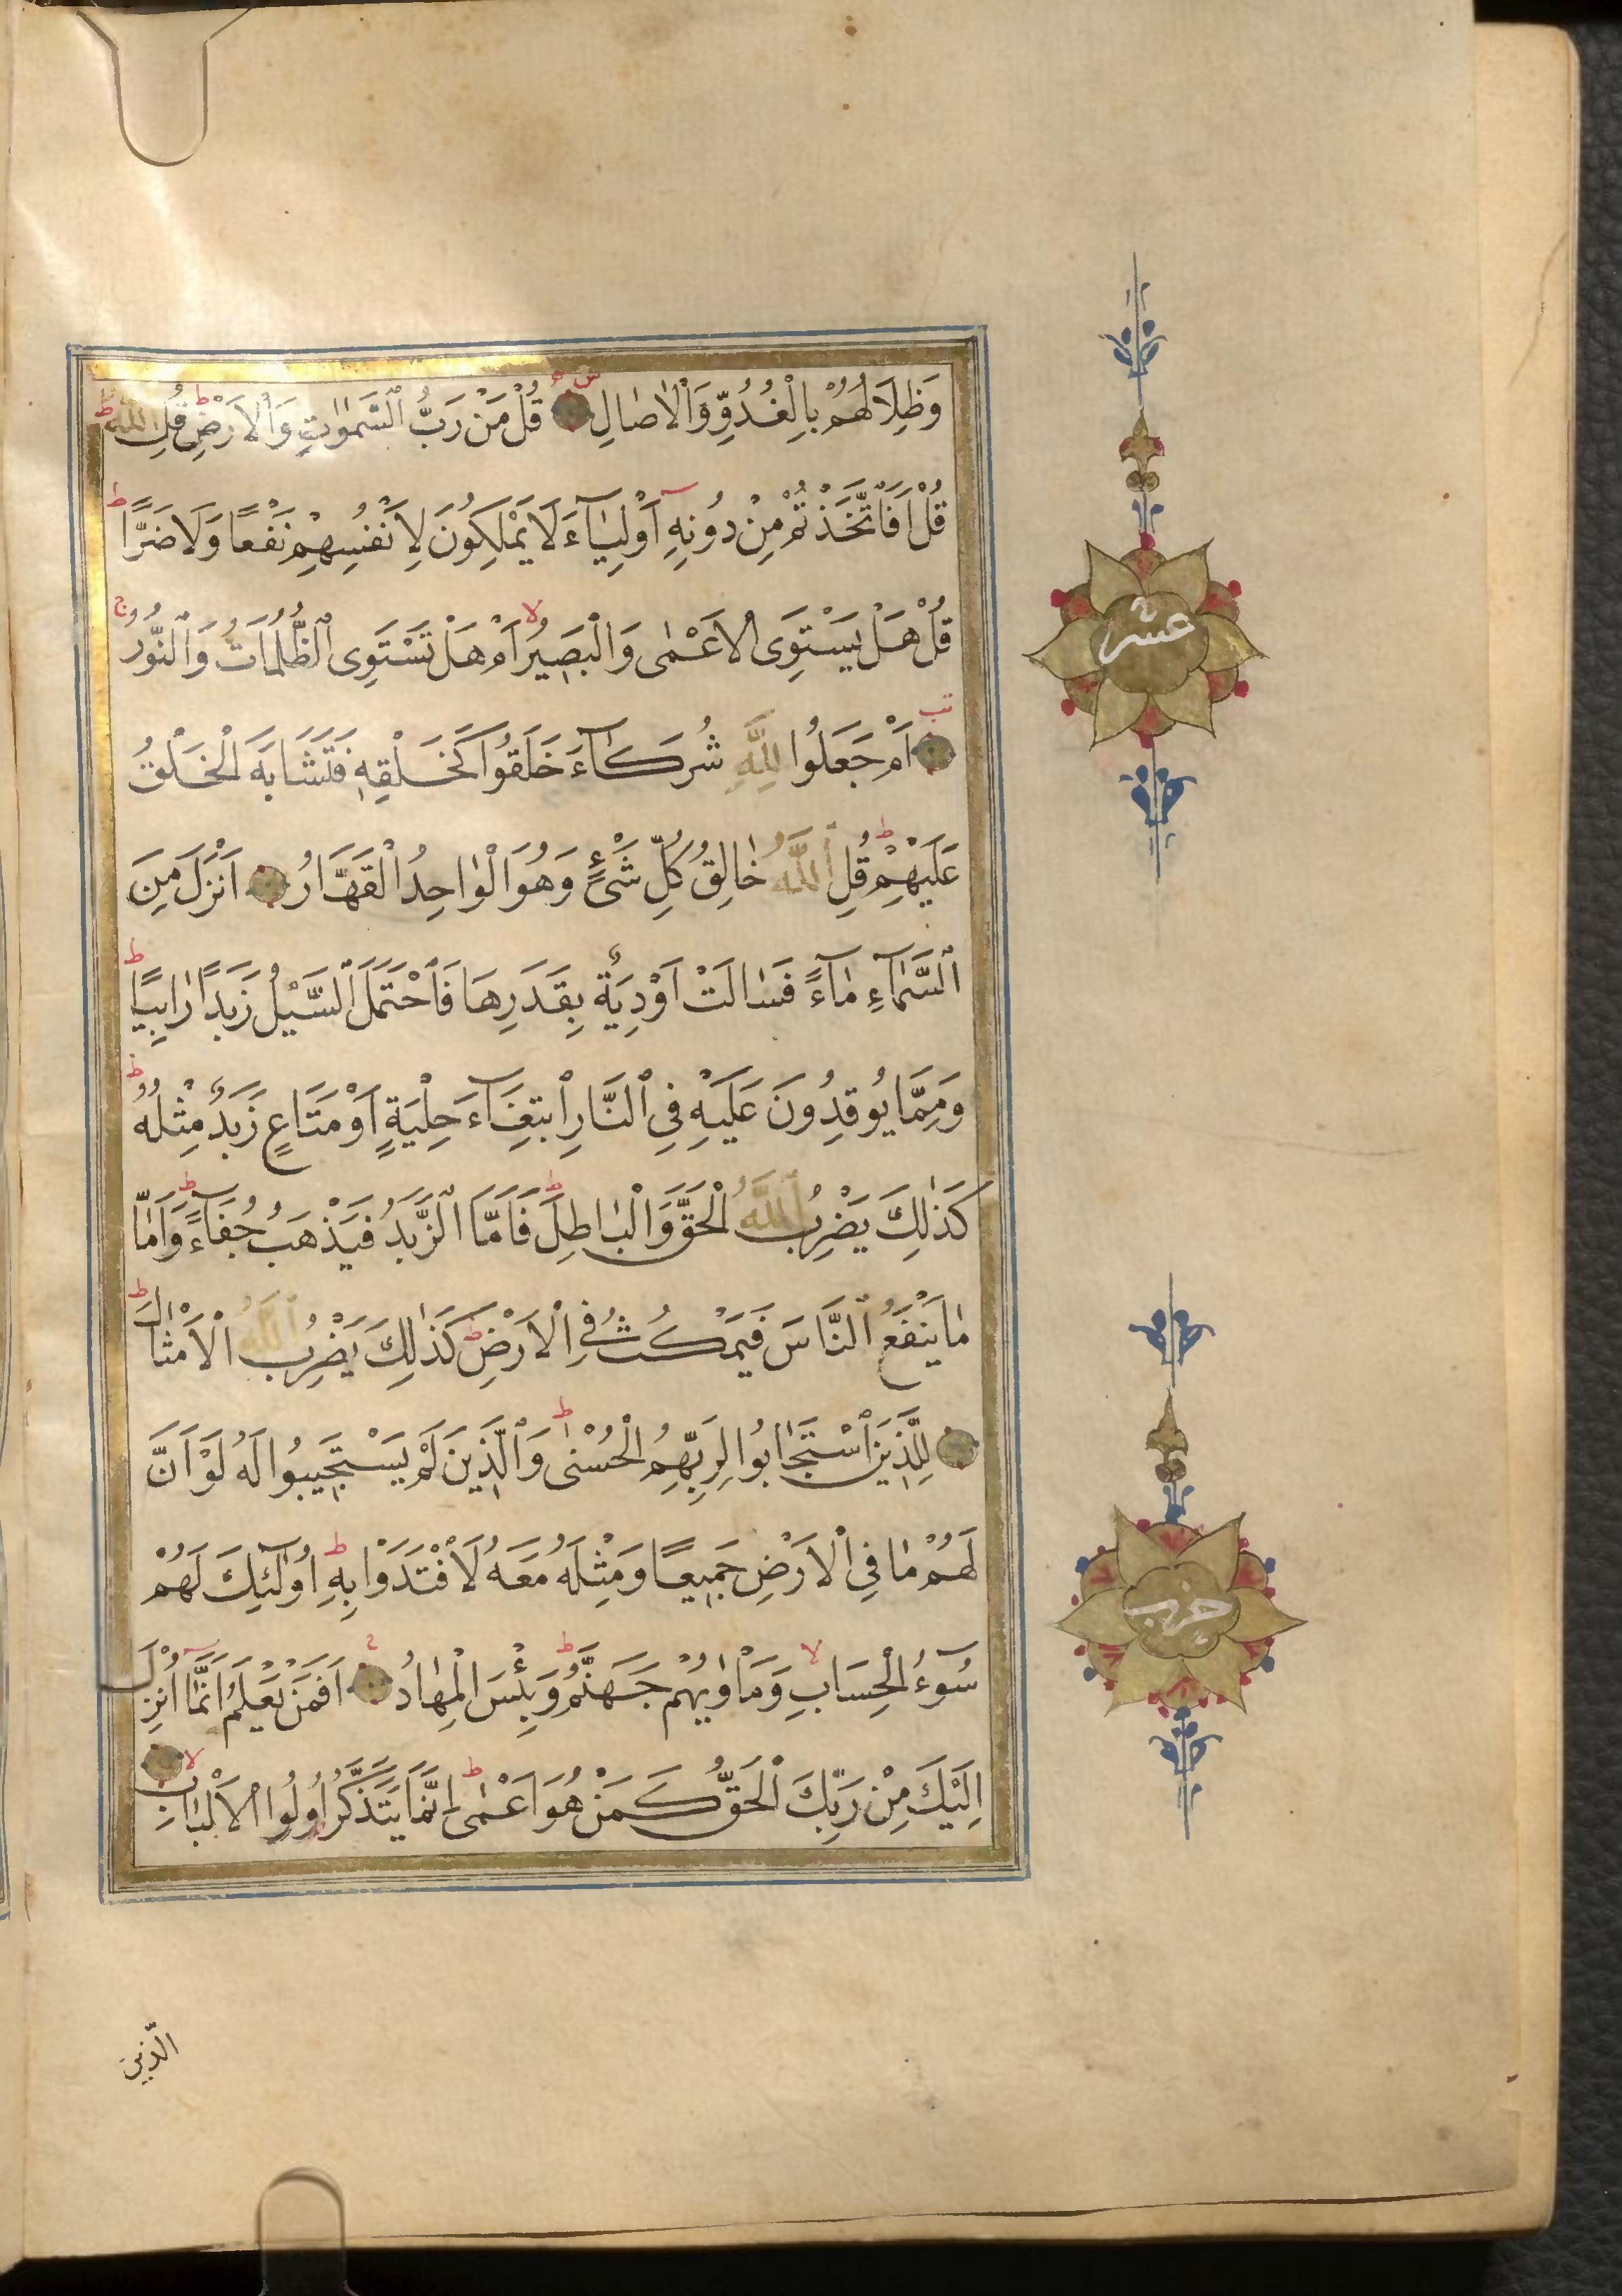 وَظِلَالُهُمْ بِالْغُدُوِّ وَالْاٰصَالِ قُلْ مَنْ رَبُّ السَّمٰوَاتِ وَالْاَرْضِ قُلِ اللّٰهُ
قُلْ اَفَاتَّخَذْتُمْ مِنْ دُونِهِ اَوْلِيَآءَ لَا يَمْلِكُونَ لِاَنْفُسِهِمْ نَفْعًا وَلَا ضَرًّا
قُلْ هَلْ يَسْتَوِى الْاَعْمٰى وَالْبَصِيرُ اَمْ هَلْ تَسْتَوِى الظُّلُمَاتُ وَالنُّورُ
عشر
اَمْ جَعَلُوا لِلّٰهِ شُرَكَآءَ خَلَقُوا كَخَلْقِهِ فَتَشَابَهَ الْخَلْقُ
عَلَيْهِمْ قُلِ اللّٰهُ خَالِقُ كُلِّ شَىْءٍ وَهُوَ الْوَاحِدُ الْقَهَّارُ اَنْزَلَ مِنَ
السَّمَآءِ مَآءً فَسَالَتْ اَوْدِيَةٌ بِقَدَرِهَا فَاحْتَمَلَ السَّيْلُ زَبَدًا رَابِيًا
وَمِمَّا يُوقِدُونَ عَلَيْهِ فِى النَّارِ ابْتِغَآءَ حِلْيَةٍ اَوْ مَتَاعٍ زَبَدٌ مِثْلُهُ
كَذٰلِكَ يَضْرِبُ اللّٰهُ الْحَقَّ وَالْبَاطِلَ فَاَمَّا الزَّبَدُ فَيَذْهَبُ جُفَآءً وَاَمَّا
مَا يَنْفَعُ النَّاسَ فَيَمْكُثُ فِى الْاَرْضِ كَذٰلِكَ يَضْرِبُ اللّٰهُ الْاَمْثَالَ
لِلَّذِينَ اسْتَجَابُوا لِرَبِّهِمُ الْحُسْنٰى وَالَّذِينَ لَمْ يَسْتَجِيبُوا لَهُ لَوْ اَنَّ
لَهُمْ مَا فِى الْاَرْضِ جَمِيعًا وَمِثْلَهُ مَعَهُ لَافْتَدَوْا بِهِ اُولٰٓئِكَ لَهُمْ
حزب
سُوٓءُ الْحِسَابِ وَمَاْوٰيهُمْ جَهَنَّمُ وَبِئْسَ الْمِهَادُ اَفَمَنْ يَعْلَمُ اَنَّمَا اُنْزِلَ
اِلَيْكَ مِنْ رَبِّكَ الْحَقُّ كَمَنْ هُوَ اَعْمٰى اِنَّمَا يَتَذَكَّرُ اُولُوا الْاَلْبَابِ
الَّذِينَ